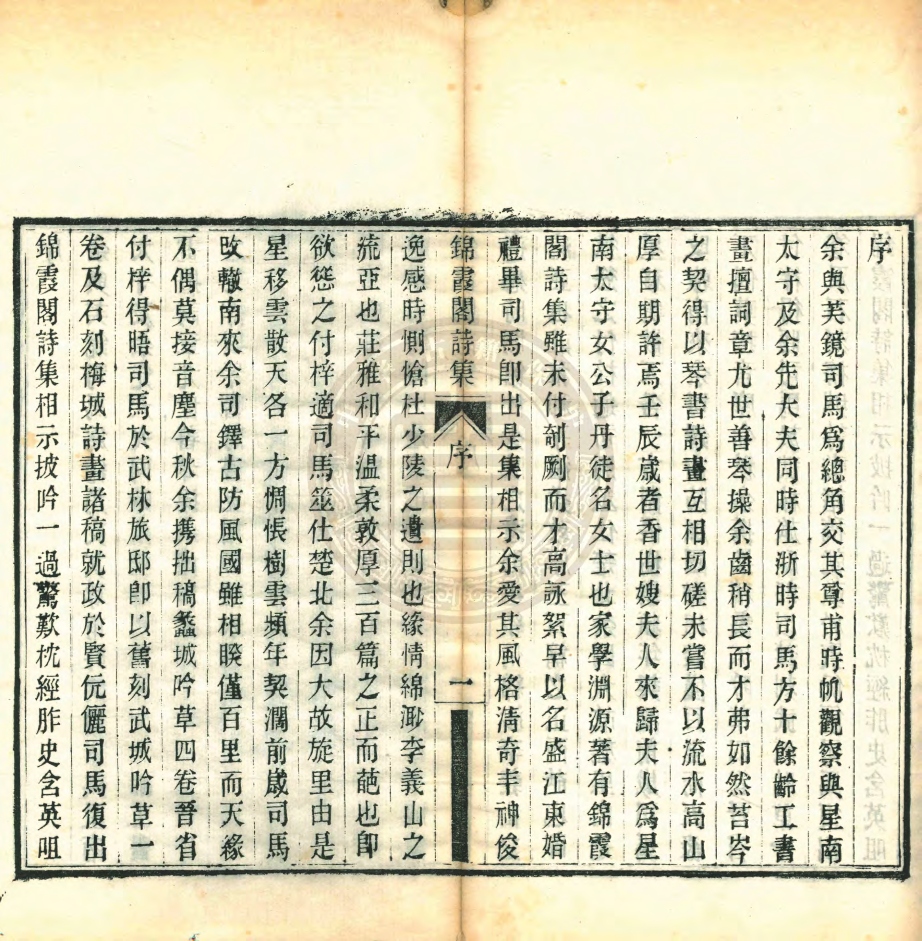 序
余與芙鏡司馬爲總角交其尊甫時帆觀察與星南
太守及余先大夫同時仕浙時司馬方十餘齡工書
畫擅詞章尤世善琴操余齒稍長而才弗如然苔岑
之契得以琴書詩畫互相切磋未嘗不以流水高山
厚自期許焉壬辰歲者香世嫂夫人來歸夫人爲星
南太守女公子丹徒名女士也家學淵源著有錦霞
閣詩集雖未付剞劂而才高詠絮早以名盛江東婚
禮畢司馬卽出是集相示余愛其風格淸奇丰神俊
錦霞閣詩集 序 一
逸感時惻愴杜少陵之遺則也緣情綿渺李義山之
流亞也莊雅和平溫柔敦厚三百篇之正而葩也卽
欲慫之付梓適司馬筮仕楚北余因大故旋里由是
星移雲散天各一方惆悵樹雲頻年契濶前歲司馬
改轍南來余司鐸古防風國雖相睽僅百里而天緣
不偶莫接音塵今秋余携拙稿蠡城吟草四卷晉省
付梓得晤司馬於武林旅邸卽以舊刻武城吟草一
卷及石刻梅城詩畫諸稿就政於賢伉儷司馬復出
錦霞閣詩集相示披吟一過驚歎枕經胙史含英咀